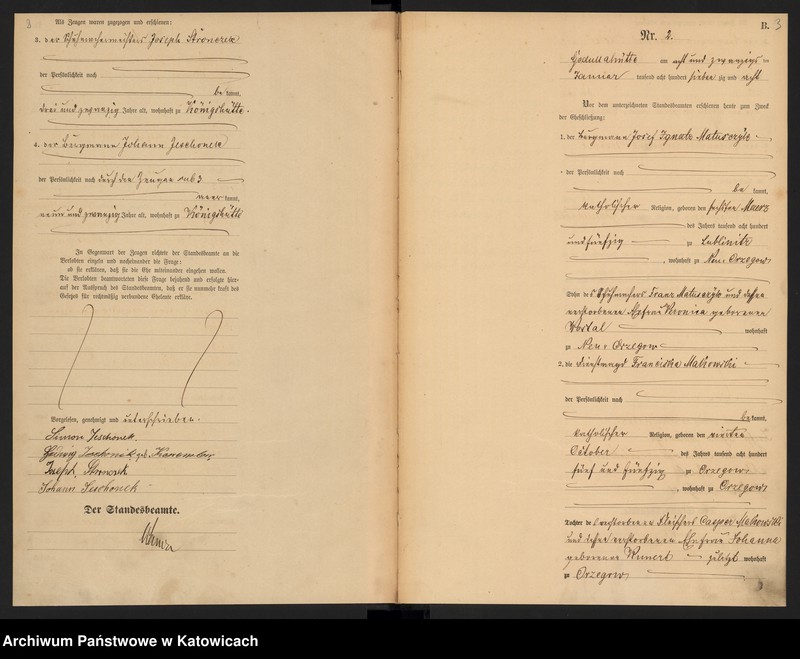 Als Zeugen waren zugezogen und erschienen:
3. der Schuhmachermeister Joseph Stronczek
der Persönlichkeit nach
be kannt,
drei und zwanzig Jahre alt, wohnhaft zu Königshütte.
4. der Bergmann Johann Jeschonek
der Persönlichkeit nach durch den Zeugen sub 3
aner kannt,
neun und zwanzig Jahre alt, wohnhaft zu Königshütte
In Gegenwart der Zeugen richtete der Standesbeamte an die
Verlobten einzeln und nacheinander die Frage:
ob sie erklären, daß sie die Ehe miteinander eingehen wollen.
Die Verlobten beantworteten diese Frage bejahend und erfolgte hier-
auf der Ausspruch des Standesbeamten, daß er sie nunmehr kraft des
Gesetzes für rechtmäßig verbundene Eheleute erkläre.
Vorgelesen, genehmigt und unterschrieben.
Simon Jeschonek
Hedwig Jeschonek geb.
Joseph Stronczek
Johann Jeschonek
Der Standesbeamte.
B. 3
Nr. 2.
Godullahütte am acht und zwanzigsten
Januar tausend acht hundert sieben zig und acht
Vor dem unterzeichneten Standesbeamten erschienen heute zum Zweck
der Eheschließung:
1. der Bergmann Josef Ignatz Matusczyk
der Persönlichkeit nach
be kannt,
katholischer Religion, geboren den sechsten Maerz
des Jahres tausend acht hundert
und fünfzig zu Lublinitz
, wohnhaft zu Neu-Orzegow
Sohn des Schuhmachers Franz Matusczyk und dessen
verstorbenen Ehefrau Veronica geborenen
wohnhaft
zu Neu-Orzegow
2. die Dienstmagd Franciska Makowski
der Persönlichkeit nach
be kannt,
katholischer Religion, geboren den vierten
October des Jahres tausend acht hundert
fünf und fünfzig zu Orzegow
, wohnhaft zu Orzegow
Tochter des verstorbenen Fleischers Casper Makowski
und seiner verstorbenen Ehefrau Johanna
geborenen zuletzt wohnhaft
zu Orzegow
Archiwum Państwowe w Katowicach